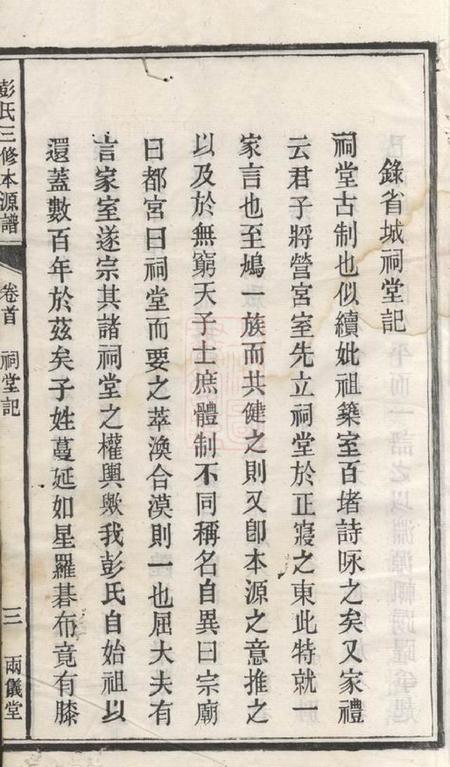 錄省城祠堂記
祠堂古制也似續妣祖築室百堵詩咏之矣又家禮
云君子將營宮室先立祠堂於正寢之東此特就一
家言也至鳩一族而共健之則又卽本源之意推之
以及於無窮天子士庶體制不同稱名自異曰宗廟
曰都宮曰祠堂而要之萃渙合漠則一也屈大夫有
言家室遂宗其諸祠堂之權輿歟我彭氏自始祖以
還蓋數百年於茲矣子姓蔓延如星羅碁布竟有膝
彭氏三修本源譜
卷首 祠堂記
三
兩儀堂